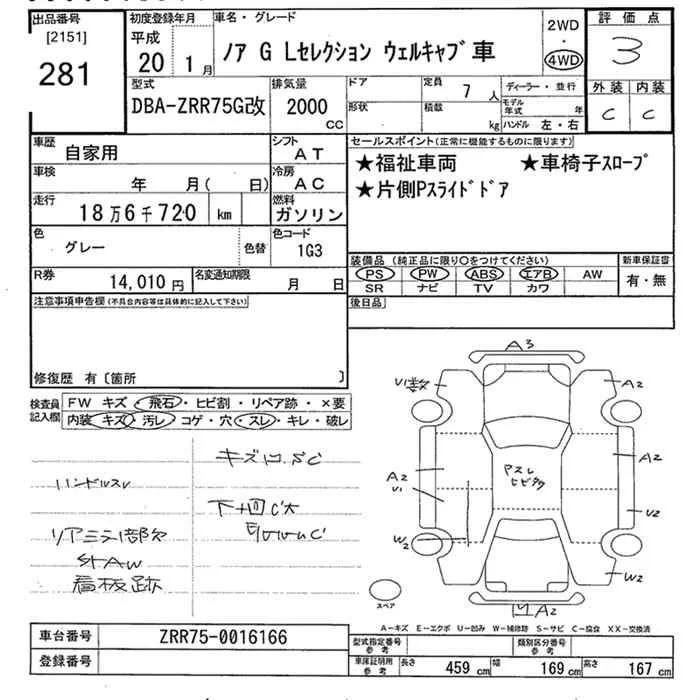 出品番号
[2151]
281
初度登録年月
平成
20 1月
車名・グレード
ノア G Lセレクション ウェルキャブ車
2WD
・
4WD
評価点
3
外装 内装
C C
型式
DBA-ZRR75G改
排気量
2000
CC
ドア
形状
定員
7 人
積載
kg
ディーラー・並行
モデル年式 年
ハンドル 左・右
車歴
自家用
シフト
AT
車検
年 月( 日)
冷房
AC
走行
18万6千720 km
燃料
ガソリン
色
グレー
色替
色コード
1G3
R券
14,010円
名変通知期限
月 日
セールスポイント(正常に機能するものに限ります)
★福祉車両 ★車椅子スロープ
★片側Pスライドドア
装備品(純正品に限り○をつけてください)
PS PW ABS エアB AW
SR ナビ TV カワ
新車保証書
有・無
後日品
注意事項申告欄(不具合内容等は具体的に記入して下さい)
修復歴 有〔箇所 〕
検査員記入欄
FW キズ・飛石・ヒビ割・リペア跡・×要
内装 キズ・汚レ・コゲ・穴・スレ・キレ・破レ
キズ凹SC
ハンドルスレ
リアミラー部欠
看板跡
A3
A2
A2
A2
U1
U2
W2
W2
A2
スペア
A-キズ E-エクボ U-凹み W-補修跡 S-サビ C-腐食 XX-交換済
車台番号
ZRR75-0016166
登録番号
型式指定番号
参考
類別区分番号
参考
車庫証明用
参考
長さ 459cm 幅 169cm 高さ 167cm